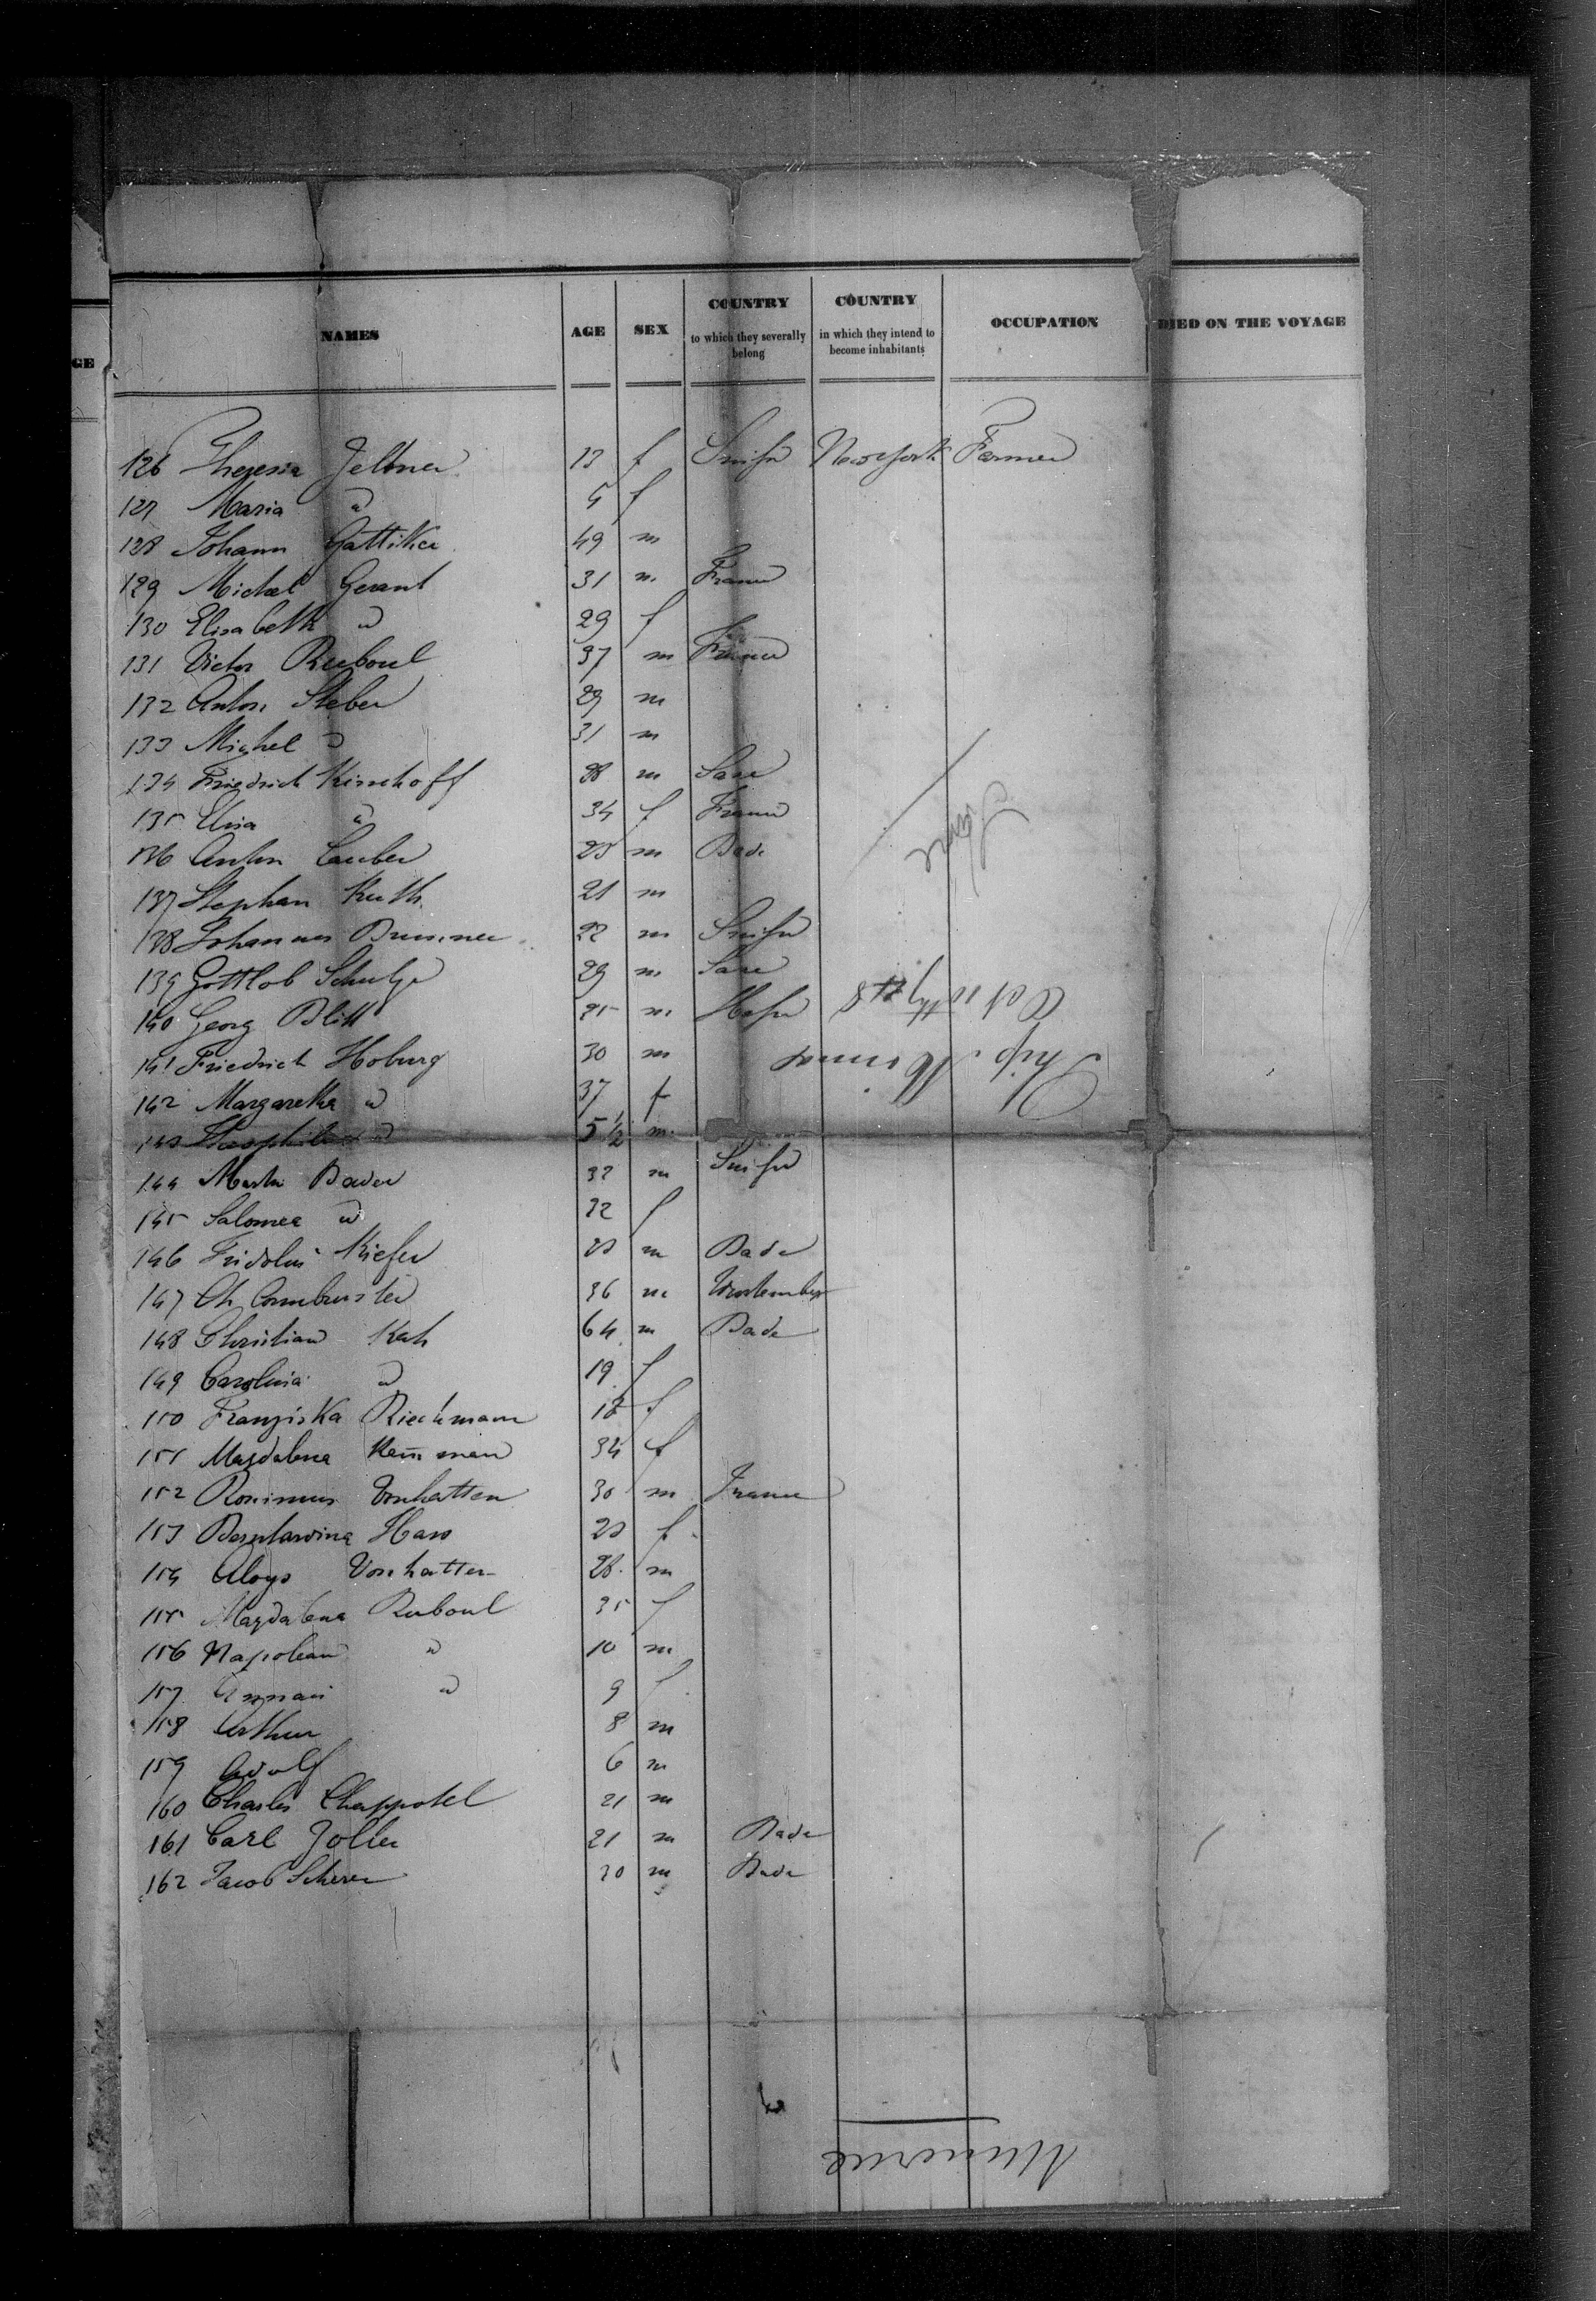 GE
NAMES AGE SEX COUNTRY to which they severally belong COUNTRY in which they intend to become inhabitants OCCUPATION DIED ON THE VOYAGE
126 Theresia Jeltner 13 f New York Farmer
127 Maria " 5 f
128 Johann Gattiker 49 m
129 Michael Gerant 31 m France
130 Elisabeth " 29 f
131 Victor Reeboul 37 m France
132 Anton Steber 29 m
133 Mighel " 31 m
134 Friedrich Kirschoff 28 m Saxe
135 Elisa " 34 f France
136 Anton Lauber 25 m Bade
137 Stephan Ruth 21 m
138 Johannes Brunner 22 m
139 Gottlob Schulze 29 m Saxe
140 Georg Blitt 25 m
141 Friedrich Hoburg 30 m
142 Margaretha " 37 f
143 " 5 1/2 m
144 Martin Bader 32 m
145 Salomea " 32 f
146 Fridolin Kiefer 23 m Bade
147 Ch Armbruster 36 m Wurtemberg
148 Christian Kah 64 m Bade
149 Carolina " 19 f
150 Franziska Riechmann 18 f
151 Magdalena 34 f
152 Vonhatten 30 m France
153 Bernhardina Hass 23 f
154 Aloys Vonhatten 28 m
155 Magdalena Reeboul 35 f
156 Napolean " 10 m
157 " 9 f
158 Arthur 8 m
159 Adolf 6 m
160 Charles Chappotel 21 m
161 Carl Zoller 21 m Bade
162 Jacob Scherer 30 m Bade
Ship
Oct